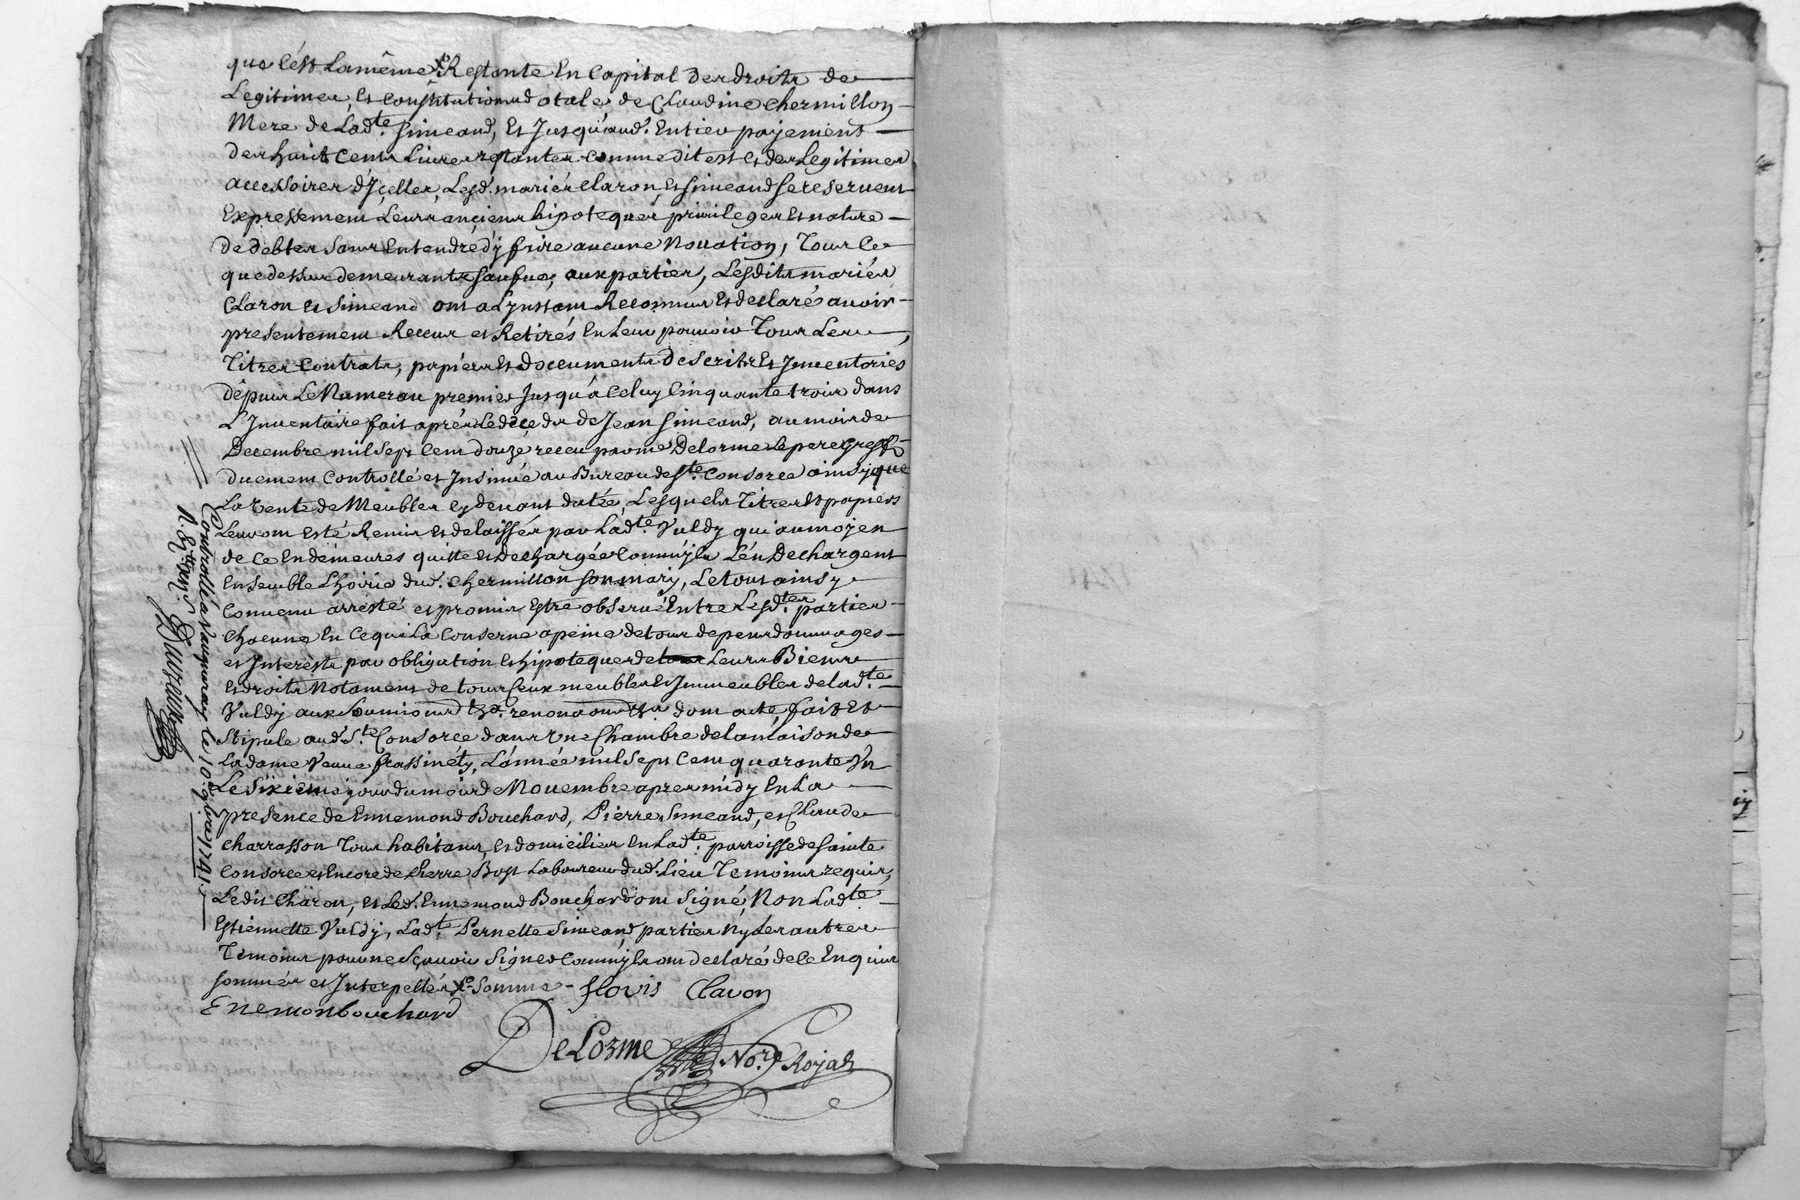 que c'est la même Xo Restante En Capital des droits de
Legitimes, Et constitution dotale de Claudine Chermillon
Mere de Ladte. Simeand, Et Jusqu'aud. Entier payement
des huit cents Livres restantes comme dit est et des Legitimes
accessoires d'Jcelles, Lesd. mariés Claron et Simeand se reservent
Expressement Leurs anciens hipoteques privileges Et nature
de debtes sans Entendre d'y faire aucune Novation, Tout ce
que dessus demeurant sauf aux parties, Lesdits mariés
Claron et Simeand ont a L'ynstant Reconnus Et declaré avoir
presentement Receus et Retirés En Leur pouvoir Tous Les
Titres Contrats, papiers Et documents descrits Et Jnventories
dépuis Le Numerau premier Jusqu'a Celuy Cinquante trois dans
L'Jnventaire fait aprés Le déceds de Jean Simeand, au mois de
Decembre mil sept cent douze receu par me Delorme le pere
Duement Controllé et Jnsinué au Bureau de Ste. Consorce ainsy que
La Vente de Meubles cy devant datée, Lesquels Titres Et papiers
Leur ont esté Remis et delaissés par Ladte Vuldy qui au moyen
de ce En demeures quitte et dechargée comm'yls L'en Dechargent
Ensemble L'hoirie dud. Chermillon son mary, Le tout ainsy
Convenu arresté et promis Estre observé Entre Lesdtes. parties
Chacune En ce qui La Conserne a peine de tous depens dommages
et Jnterests par obligation Et hipoteques de tous Leurs Biens
Et droits Notament de tous Ceux meubles Et Jmmeubles de Ladte.
Vuldy aux Soumions &a. renonaons &a. dont acte, fait Et
Stipule aud. Ste Consorce dans Une Chambre de La maison de
La dame Veuve frassinéty, L'année mil sept Cent quarante Vn
Le Sixieme jour du mois de Novembre apres midy En La
presence de Ennemond Bouchard, Pierre Simeand, et Claude
Charrasson Tous habitans, Et domiciliés En Ladte. parroisse de Sainte
Consorce et Encore de Pierre Bost Laboureur dud. Lieu Temoins requis,
Ledit Charon, et Led. Ennemond Bouchard ont Signé, Non Ladte
Estiennette Vuldy, Ladt. Pernette Simeand parties Ny Les autres
Temoins pour ne Sçavoir Signer Comm'yls ont Declaré de ce Enquis
sommés et Jnterpellés Xo Somme - flovis Claron
Enemonbouchard
DeLorme No.re Royal
Controllé a Vaugneray le 10e 9bre 1741.